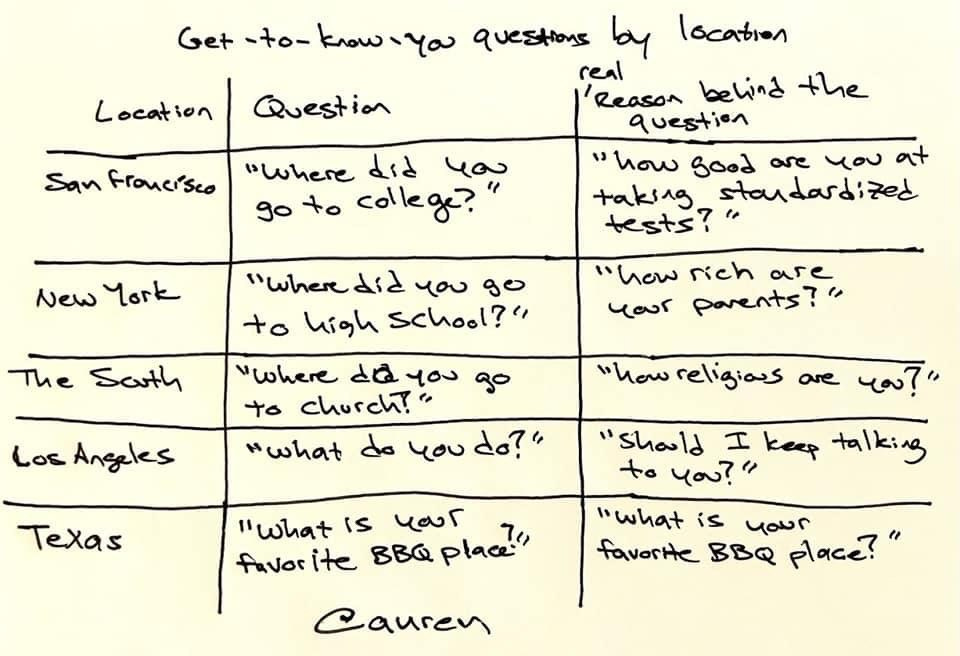 Get-to-know-you questions by location
Location
Question
real
Reason behind the
question
San Francisco
"Where did you
go to college?"
"how good are you at
taking standardized
tests?"
New York
"Where did you go
to high school?"
"how rich are
your parents?"
The South
"Where do you go
to church?"
"how religious are you?"
Los Angeles
"What do you do?"
"Should I keep talking
to you?"
Texas
"What is your
favorite BBQ place?"
"What is your
favorite BBQ place?"
@auren